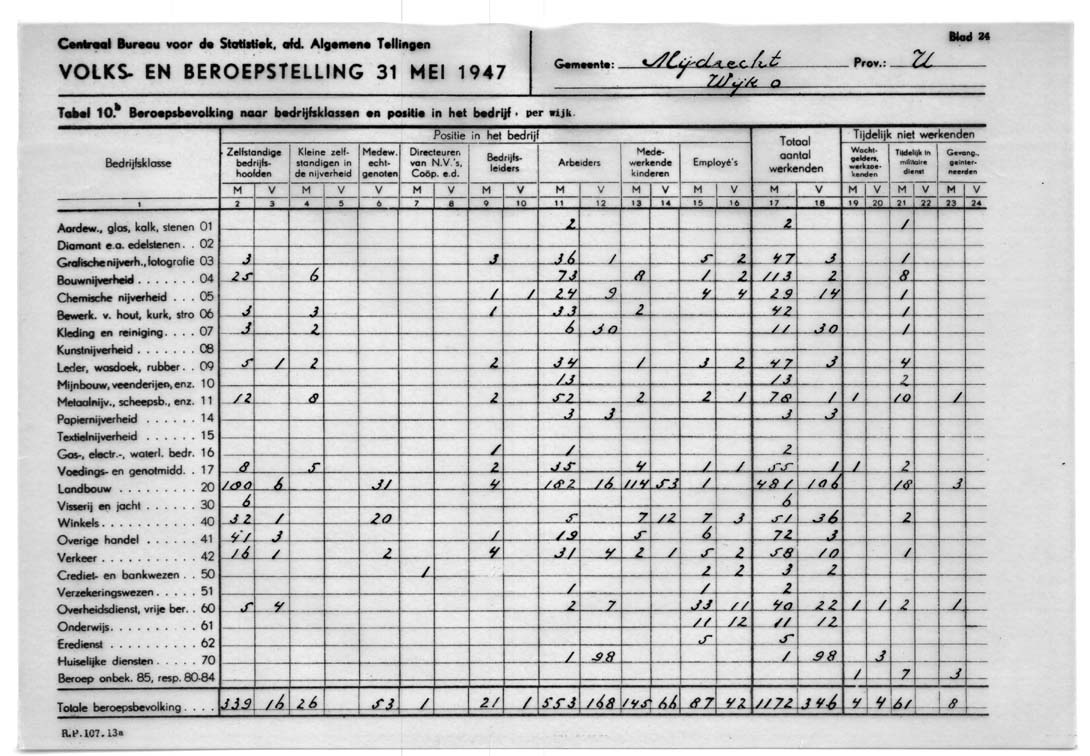 Centraal Bureau voor de Statistiek, afd. Algemene Tellingen
VOLKS- EN BEROEPSTELLING 31 MEI 1947
Gemeente: Mijdrecht Prov.: U Blad 24
Wijk o
Tabel 10.b Beroepsbevolking naar bedrijfsklassen en positie in het bedrijf, per wijk.
Bedrijfsklasse
Positie in het bedrijf
Totaal aantal werkenden
Tijdelijk niet werkenden
Zelfstandige bedrijfs-hoofden
Kleine zelf-standigen in de nijverheid
Medew. echt-genoten
Directeuren van N.V.'s, Coöp. e.d.
Bedrijfs-leiders
Arbeiders
Mede-werkende kinderen
Employé's
Wacht-gelders, werkzoe-kenden
Tijdelijk in militaire dienst
Gevang., geïnter-neerden
M V M V V M V M V M V M V M V M V M V M V M V
1 2 3 4 5 6 7 8 9 10 11 12 13 14 15 16 17 18 19 20 21 22 23 24
Aardew., glas, kalk, stenen 01 2 2 1
Diamant e.a. edelstenen . . 02
Grafische nijverh., fotografie 03 3 3 36 1 5 2 47 3 1
Bouwnijverheid . . . . . . . 04 25 6 73 8 1 2 113 2 8
Chemische nijverheid . . . 05 1 1 24 9 4 4 29 14 1
Bewerk. v. hout, kurk, stro 06 3 3 1 33 2 42 1
Kleding en reiniging . . . . 07 3 2 6 30 11 30 1
Kunstnijverheid . . . . . . . 08
Leder, wasdoek, rubber . . 09 5 1 2 2 34 1 3 2 47 3 4
Mijnbouw, veenderijen, enz. 10 13 13 2
Metaalnijv., scheepsb., enz. 11 12 8 2 52 2 2 1 78 1 1 10 1
Papiernijverheid . . . . . . 14 3 3 3 3
Textielnijverheid . . . . . . 15
Gas-, electr.-, waterl. bedr. 16 1 1 2
Voedings- en genotmidd. . 17 8 5 2 35 4 1 1 55 1 1 2
Landbouw . . . . . . . . . 20 180 6 31 4 182 16 114 53 1 481 106 18 3
Visserij en jacht . . . . . . 30 6 6
Winkels . . . . . . . . . . . 40 32 1 20 5 7 12 7 3 51 36 2
Overige handel . . . . . . 41 41 3 1 19 5 6 72 3
Verkeer . . . . . . . . . . . 42 16 1 2 4 31 4 2 1 5 2 58 10 1
Crediet- en bankwezen . . 50 1 2 2 3 2
Verzekeringswezen . . . . . 51 1 1 2
Overheidsdienst, vrije ber. . 60 5 4 2 7 33 11 40 22 1 1 2 1
Onderwijs . . . . . . . . . . 61 11 12 11 12
Eredienst . . . . . . . . . . 62 5 5
Huiselijke diensten . . . . . 70 1 98 1 98 3
Beroep onbek. 85, resp. 80-84 1 7 3
Totale beroepsbevolking . . . . 339 16 26 53 1 21 1 553 168 145 66 87 42 1172 346 4 4 61 8
R.P.107.13a